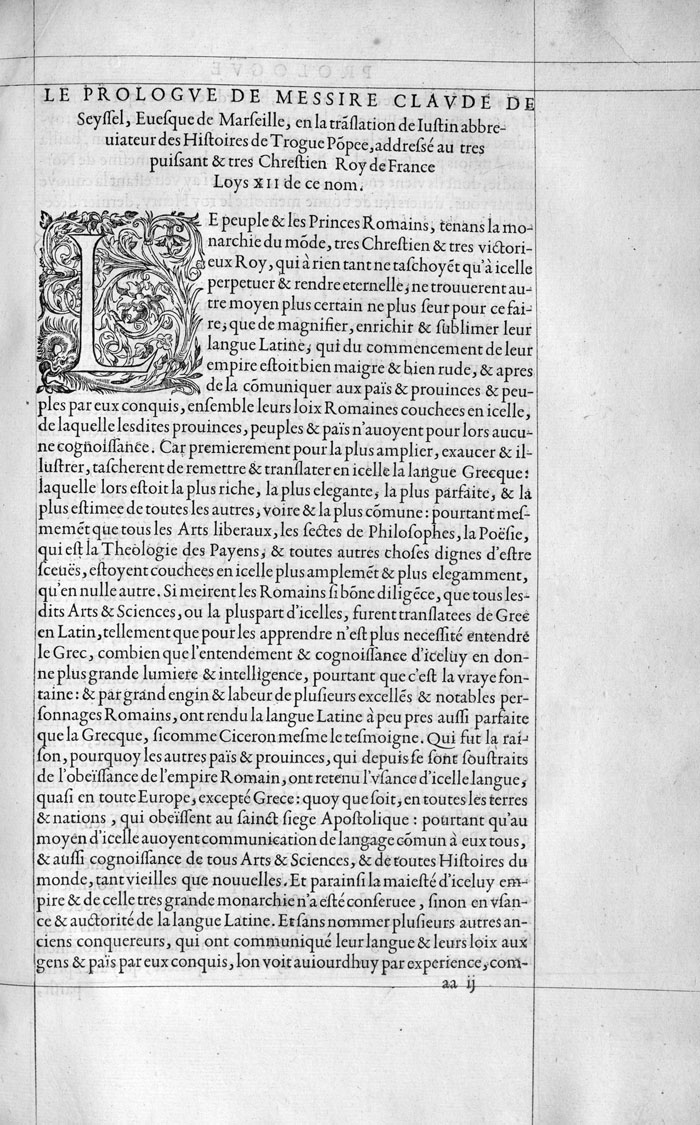 LE PROLOGVE DE MESSIRE CLAVDE DE
Seyſſel, Eueſque de Marſeille, en la trãſlation de Iuſtin abbre-
uiateur des Hiſtoires de Trogue Põpee, addreſſé au tres
puiſſant & tres Chreſtien Roy de France
Loys XII de ce nom.
LE peuple & les Princes Romains, tenans la mo-
narchie du mõde, tres Chreſtien & tres victori-
eux Roy, qui à rien tant ne taſchoyẽt qu'à icelle
perpetuer & rendre eternelle, ne trouuerent au-
tre moyen plus certain ne plus ſeur pour ce fai-
re, que de magnifier, enrichir & ſublimer leur
langue Latine, qui du commencement de leur
empire eſtoit bien maigre & bien rude, & apres
de la cõmuniquer aux païs & prouinces & peu-
ples par eux conquis, enſemble leurs loix Romaines couchees en icelle,
de laquelle leſdites prouinces, peuples & païs n'auoyent pour lors aucu-
ne cognoiſſance. Car premierement pour la plus amplier, exaucer & il-
luſtrer, taſcherent de remettre & tranſlater en icelle la langue Grecque:
laquelle lors eſtoit la plus riche, la plus elegante, la plus parfaite, & la
plus eſtimee de toutes les autres, voire & la plus cõmune: pourtant meſ-
memẽt que tous les Arts liberaux, les ſectes de Philoſophes, la Poëſie,
qui eſt la Theologie des Payens, & toutes autres choſes dignes d'eſtre
ſceuës, eſtoyent couchees en icelle plus amplemẽt & plus elegamment,
qu'en nulle autre. Si meirent les Romains ſi bõne diligẽce, que tous leſ-
dits Arts & Sciences, ou la pluspart d'icelles, furent tranſlatees de Grec
en Latin, tellement que pour les apprendre n'eſt plus neceſſité entendre
le Grec, combien que l'entendement & cognoiſſance d'iceluy en don-
ne plus grande lumiere & intelligence, pourtant que c'eſt la vraye fon-
taine: & par grand engin & labeur de pluſieurs excellẽs & notables per-
ſonnages Romains, ont rendu la langue Latine à peu pres auſſi parfaite
que la Grecque, ſicomme Ciceron meſme le teſmoigne. Qui fut la rai-
ſon, pourquoy les autres païs & prouinces, qui depuis ſe ſont ſouſtraits
de l'obeïſſance de l'empire Romain, ont retenu l'vſance d'icelle langue,
quaſi en toute Europe, excepté Grece: quoy que ſoit, en toutes les terres
& nations, qui obeïſſent au ſainct ſiege Apoſtolique: pourtant qu'au
moyen d'icelle auoyent communication de langage cõmun à eux tous,
& auſſi cognoiſſance de tous Arts & Sciences, & de toutes Hiſtoires du
monde, tant vieilles que nouuelles. Et parainſi la maieſté d'iceluy em-
pire & de celle tres grande monarchie n'a eſté conſeruee, ſinon en vſan-
ce & auctorité de la langue Latine. Et ſans nommer pluſieurs autres an-
ciens conquereurs, qui ont communiqué leur langue & leurs loix aux
gens & païs par eux conquis, lon voit auiourdhuy par experience, com-
aa ij